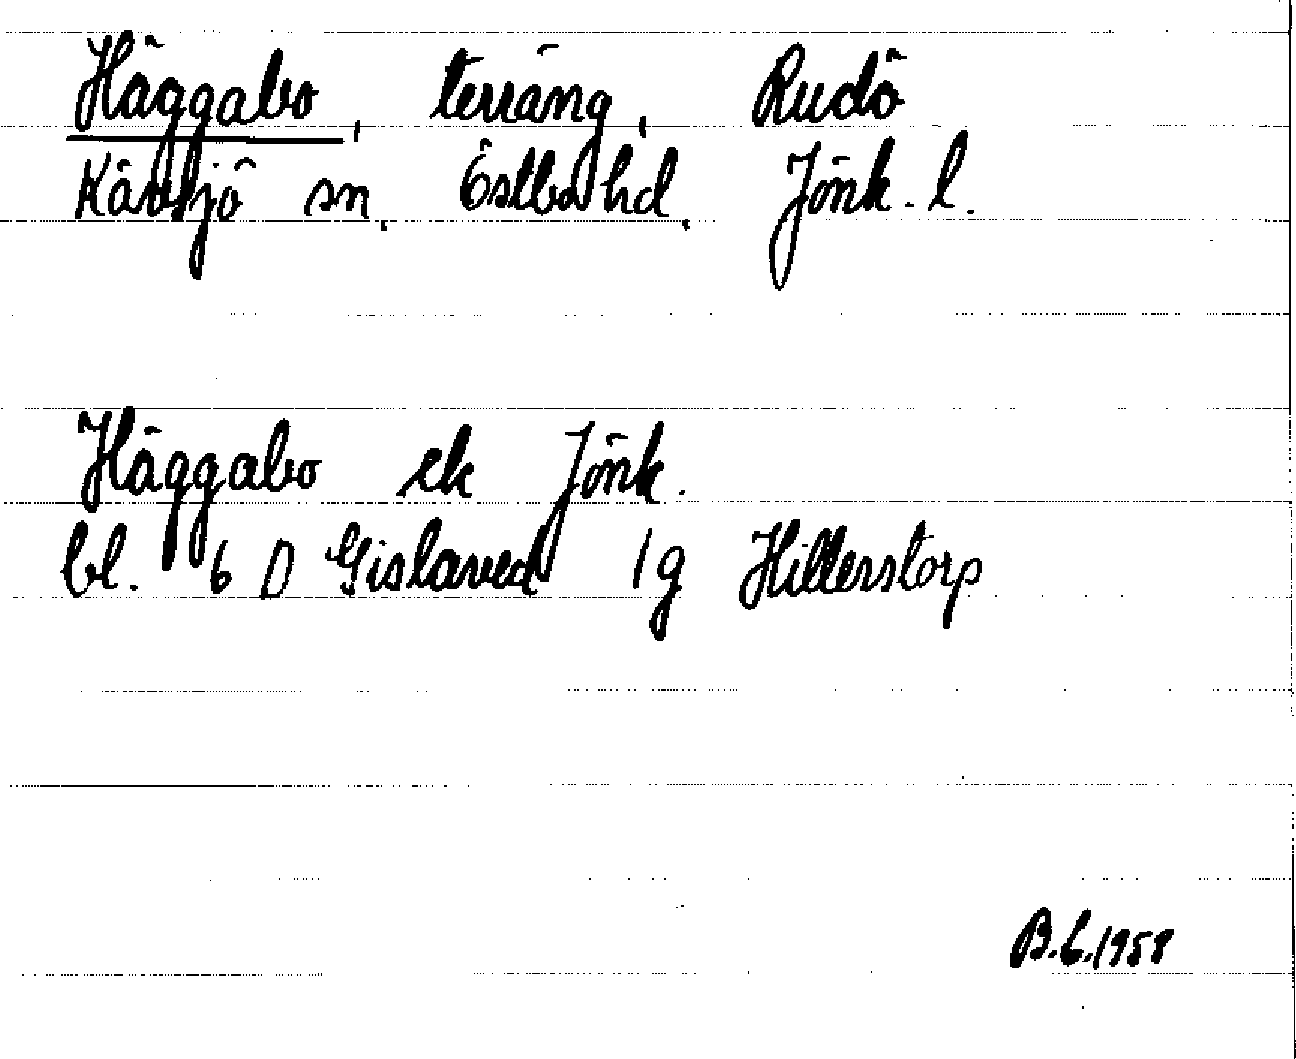 Häggabo, terräng, Rudö
Kävsjö sn. Östbo hd. Jönk. l.
Häggabo ek Jönk.
bl. 6 D Gislaved 1g Hillerstorp
B.L.1958